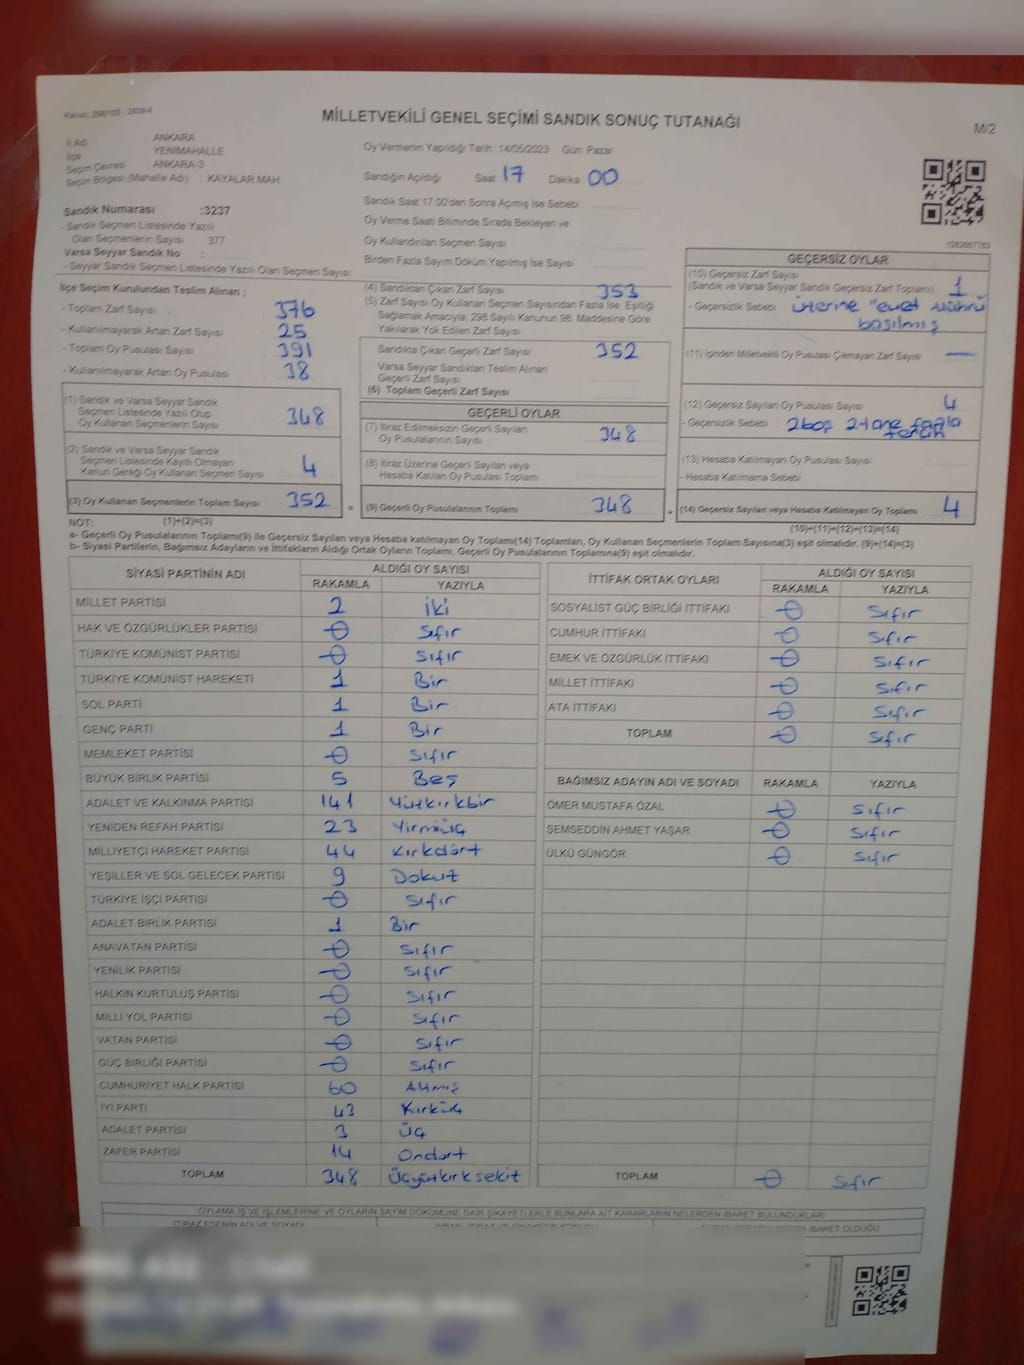 Kanun: 298/105 - 2839/4
MİLLETVEKİLİ GENEL SEÇİMİ SANDIK SONUÇ TUTANAĞI
M/2
İl Adı ANKARA
İlçe YENİMAHALLE
Seçim Çevresi ANKARA-3
Seçim Bölgesi (Mahalle Adı) : KAYALAR MAH.
Oy Vermenin Yapıldığı Tarih 14/05/2023 Gün: Pazar
Sandığın Açıldığı Saat 17 Dakika 00
Sandık Saat 17:00'den Sonra Açılmış İse Sebebi
Sandık Numarası :3237
- Sandık Seçmen Listesinde Yazılı
Olan Seçmenlerin Sayısı 377
Varsa Seyyar Sandık No :
- Seyyar Sandık Seçmen Listesinde Yazılı Olan Seçmen Sayısı:
Oy Verme Saati Bitiminde Sırada Bekleyen ve
Oy Kullandırılan Seçmen Sayısı
Birden Fazla Sayım Döküm Yapılmış İse Sayısı
1083687783
İlçe Seçim Kurulundan Teslim Alınan ;
- Toplam Zarf Sayısı : 376
- Kullanılmayarak Artan Zarf Sayısı : 25
- Toplam Oy Pusulası Sayısı : 391
- Kullanılmayarak Artan Oy Pusulası : 38
(1) Sandık ve Varsa Seyyar Sandık
Seçmen Listesinde Yazılı Olup
Oy Kullanan Seçmenlerin Sayısı 348
(2) Sandık ve Varsa Seyyar Sandık
Seçmen Listesinde Kayıtlı Olmayan
Kanun Gereği Oy Kullanan Seçmen Sayısı 4
(3) Oy Kullanan Seçmenlerin Toplam Sayısı 352 =
(1)+(2)=(3)
(4) Sandıktan Çıkan Zarf Sayısı 353
(5) Zarf Sayısı Oy Kullanan Seçmen Sayısından Fazla İse, Eşitliği
Sağlamak Amacıyla, 298 Sayılı Kanunun 98. Maddesine Göre
Yakılarak Yok Edilen Zarf Sayısı
Sandıkta Çıkan Geçerli Zarf Sayısı 352
Varsa Seyyar Sandıktan Teslim Alınan
Geçerli Zarf Sayısı
(6) Toplam Geçerli Zarf Sayısı
GEÇERLİ OYLAR
(7) İtiraz Edilmeksizin Geçerli Sayılan
Oy Pusulalarının Sayısı 348
(8) İtiraz Üzerine Geçerli Sayılan veya
Hesaba Katılan Oy Pusulası Toplamı
(9) Geçerli Oy Pusulalarının Toplamı 348 +
GEÇERSİZ OYLAR
(10) Geçersiz Zarf Sayısı
(Sandık ve Varsa Seyyar Sandık Geçersiz Zarf Toplamı) 1
- Geçersizlik Sebebi : üzerine "evet mührü
basılmış
(11) İçinden Milletvekili Oy Pusulası Çıkmayan Zarf Sayısı —
(12) Geçersiz Sayılan Oy Pusulası Sayısı 4
- Geçersizlik Sebebi : 2 boş 2 tane fazla
(13) Hesaba Katılmayan Oy Pusulası Sayısı
- Hesaba Katılmama Sebebi
(14) Geçersiz Sayılan veya Hesaba Katılmayan Oy Toplamı 4
(10)+(11)+(12)+(13)=(14)
NOT:
a- Geçerli Oy Pusulalarının Toplamı(9) ile Geçersiz Sayılan veya Hesaba katılmayan Oy Toplamı(14) Toplamları, Oy Kullanan Seçmenlerin Toplam Sayısına(3) eşit olmalıdır. (9)+(14)=(3)
b- Siyasi Partilerin, Bağımsız Adayların ve İttifakların Aldığı Ortak Oyların Toplamı, Geçerli Oy Pusulalarının Toplamına(9) eşit olmalıdır.
SİYASİ PARTİNİN ADI ALDIĞI OY SAYISI
RAKAMLA YAZIYLA
MİLLET PARTİSİ 2 iki
HAK VE ÖZGÜRLÜKLER PARTİSİ 0 Sıfır
TÜRKİYE KOMÜNİST PARTİSİ 0 Sıfır
TÜRKİYE KOMÜNİST HAREKETİ 1 Bir
SOL PARTİ 1 Bir
GENÇ PARTİ 1 Bir
MEMLEKET PARTİSİ 0 Sıfır
BÜYÜK BİRLİK PARTİSİ 5 Beş
ADALET VE KALKINMA PARTİSİ 141 Yüzkırkbir
YENİDEN REFAH PARTİSİ 23 Yirmiüç
MİLLİYETÇİ HAREKET PARTİSİ 44 Kırkdört
YEŞİLLER VE SOL GELECEK PARTİSİ 9 Dokuz
TÜRKİYE İŞÇİ PARTİSİ 0 Sıfır
ADALET BİRLİK PARTİSİ 1 Bir
ANAVATAN PARTİSİ 0 Sıfır
YENİLİK PARTİSİ 0 Sıfır
HALKIN KURTULUŞ PARTİSİ 0 Sıfır
MİLLİ YOL PARTİSİ 0 Sıfır
VATAN PARTİSİ 0 Sıfır
GÜÇ BİRLİĞİ PARTİSİ 0 Sıfır
CUMHURİYET HALK PARTİSİ 60 Altmış
İYİ PARTİ 43 Kırküç
ADALET PARTİSİ 3 Üç
ZAFER PARTİSİ 14 Ondört
TOPLAM 348 Üçyüzkırksekiz
İTTİFAK ORTAK OYLARI ALDIĞI OY SAYISI
RAKAMLA YAZIYLA
SOSYALİST GÜÇ BİRLİĞİ İTTİFAKI 0 Sıfır
CUMHUR İTTİFAKI 0 Sıfır
EMEK VE ÖZGÜRLÜK İTTİFAKI 0 Sıfır
MİLLET İTTİFAKI 0 Sıfır
ATA İTTİFAKI 0 Sıfır
TOPLAM 0 Sıfır
BAĞIMSIZ ADAYIN ADI VE SOYADI RAKAMLA YAZIYLA
ÖMER MUSTAFA ÖZAL 0 Sıfır
ŞEMSEDDİN AHMET YAŞAR 0 Sıfır
ÜLKÜ GÜNGÖR 0 Sıfır
TOPLAM 0 Sıfır
OYLAMA İŞ VE İŞLEMLERİNE VE OYLARIN SAYIM DÖKÜMÜNE DAİR ŞİKAYETLERLE BUNLARA AİT KARARLARIN NELERDEN İBARET BULUNDUKLARI
İTİRAZ EDENİN ADI VE SOYADI
İBARET OLDUĞU